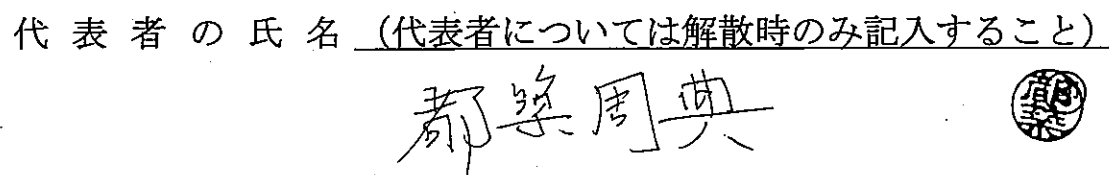 代表者の氏名 (代表者については解散時のみ記入すること)
都築周典
都築